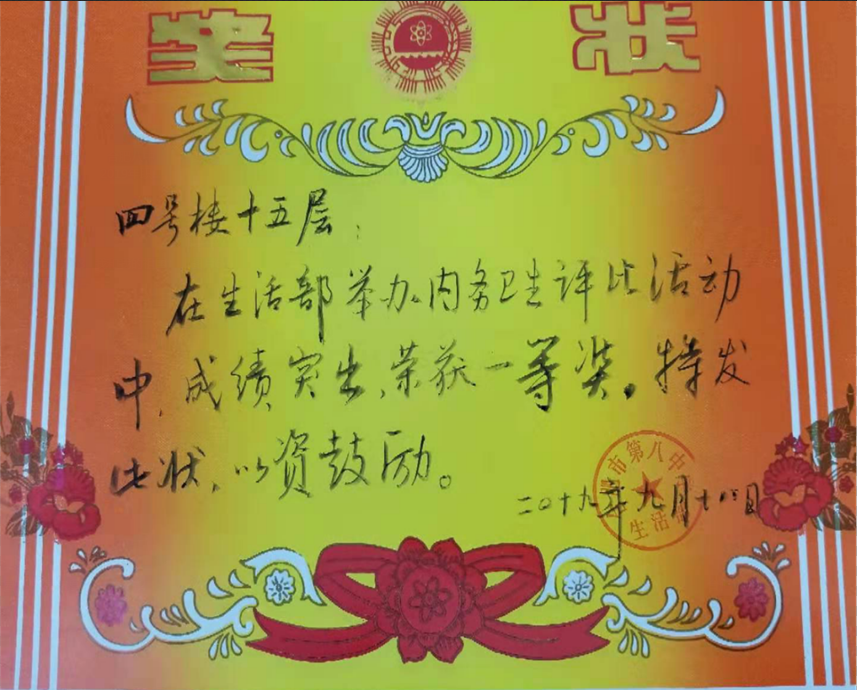 奖 状
四号楼十五层：
在生活部举办内务卫生评比活动
中，成绩突出，荣获一等奖。特发
此状，以资鼓励。
市第八中
生活
二〇十九年九月十八日